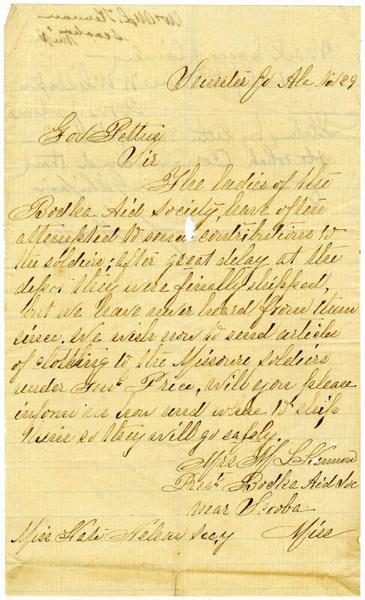 Mrs M L Kennon
Scooba
Miss
Sumter Co Ala Nov 29
Gov Pettus
Sir
The ladies of the
Bodka Aid Society, have often
attempted to send contributions to
the soldiers, after great delay at the
depot they were finally shipped,
but we have never heard from them
since. We wish now to send articles
of clothing to the Missouri soldiers
under Price, will you please
inform us how and where to ship
them so they will go safely.
Mrs M L Kennon
Prest Bodka Aid Soc
near Scooba
Miss Kate Nelson Secy Miss